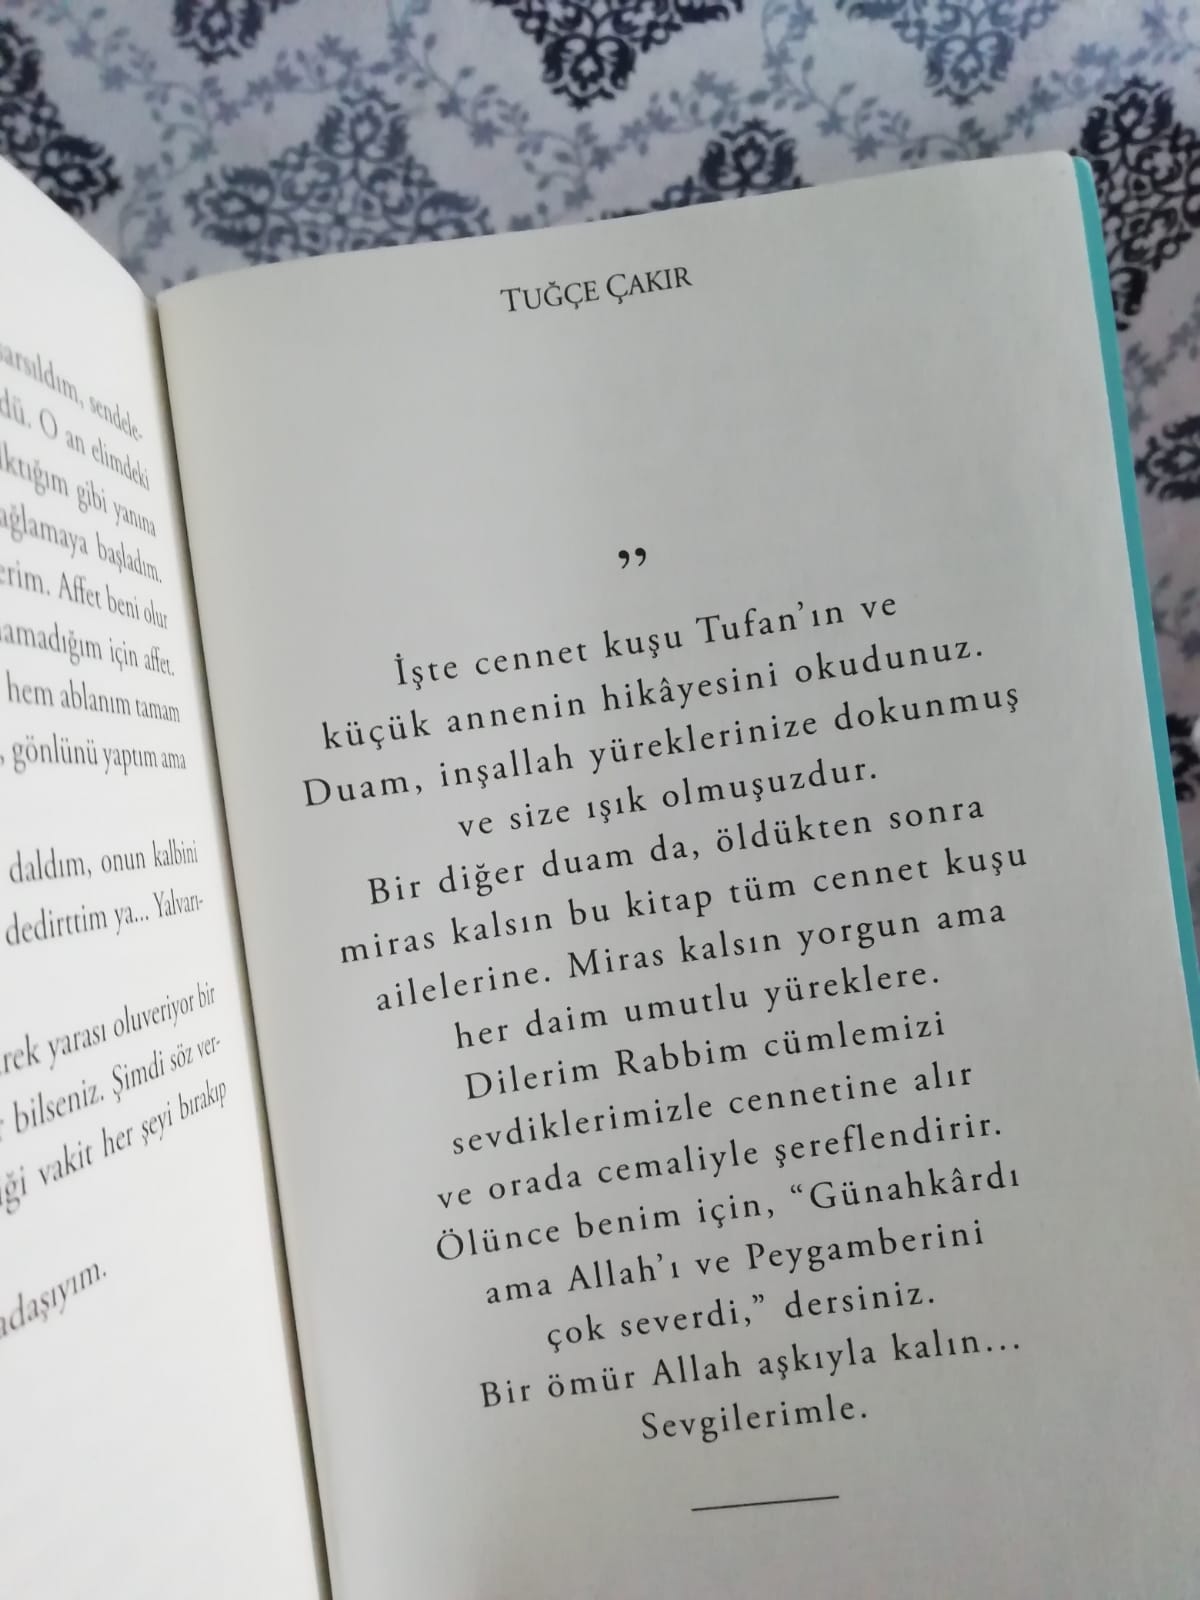 sendele-
dü. O an elimdeki
gibi yanına
ağlamaya başladım.
Affet beni olur
için affet.
hem ablanım tamam
gönlünü yaptım ama
daldım, onun kalbini
dedirttim ya... Yalvarı-
yarası oluveriyor bir
bilseniz. Şimdi söz ver-
vakit her şeyi bırakıp
TUĞÇE ÇAKIR
”
İşte cennet kuşu Tufan’ın ve
küçük annenin hikâyesini okudunuz.
Duam, inşallah yüreklerinize dokunmuş
ve size ışık olmuşuzdur.
Bir diğer duam da, öldükten sonra
miras kalsın bu kitap tüm cennet kuşu
ailelerine. Miras kalsın yorgun ama
her daim umutlu yüreklere.
Dilerim Rabbim cümlemizi
sevdiklerimizle cennetine alır
ve orada cemaliyle şereflendirir.
Ölünce benim için, “Günahkârdı
ama Allah’ı ve Peygamberini
çok severdi,” dersiniz.
Bir ömür Allah aşkıyla kalın...
Sevgilerimle.